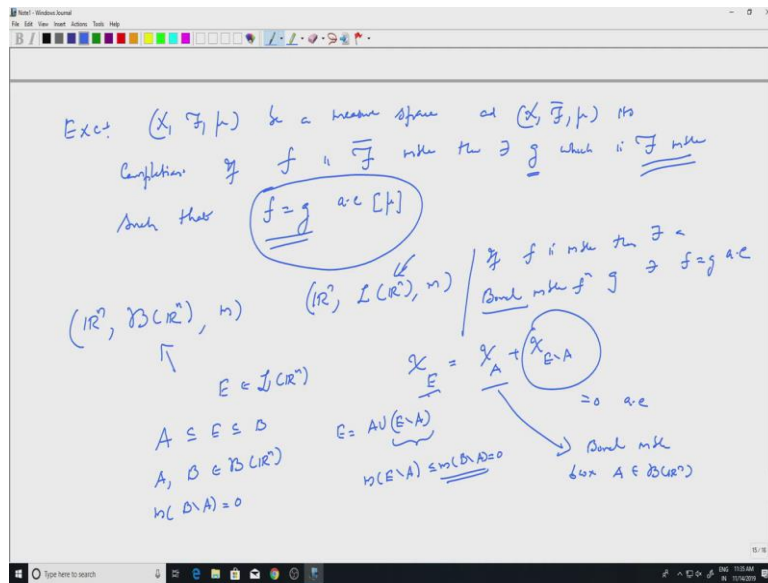 Note1 - Windows Journal
File Edit View Insert Actions Tools Help
Exc: (X, F, μ) be a measure space and (X, F̅, μ) its
Completion. If f is F̅ mble then ∃ g which is F mble
such that f = g a.e [μ]
If f is mble then ∃ a
Borel mble fⁿ g ∋ f = g a.e
(ℝⁿ, B(ℝⁿ), m)
(ℝⁿ, L(ℝⁿ), m)
E ∈ L(ℝⁿ)
χ_E = χ_A + χ_{E\A}
= 0 a.e
A ⊆ E ⊆ B
E = A ∪ (E\A)
A, B ∈ B(ℝⁿ)
m(E\A) ≤ m(B\A) = 0
m(B\A) = 0
Borel mble
bcx A ∈ B(ℝⁿ)
15/16
Type here to search
ENG 11:35 AM
IN 11/14/2019